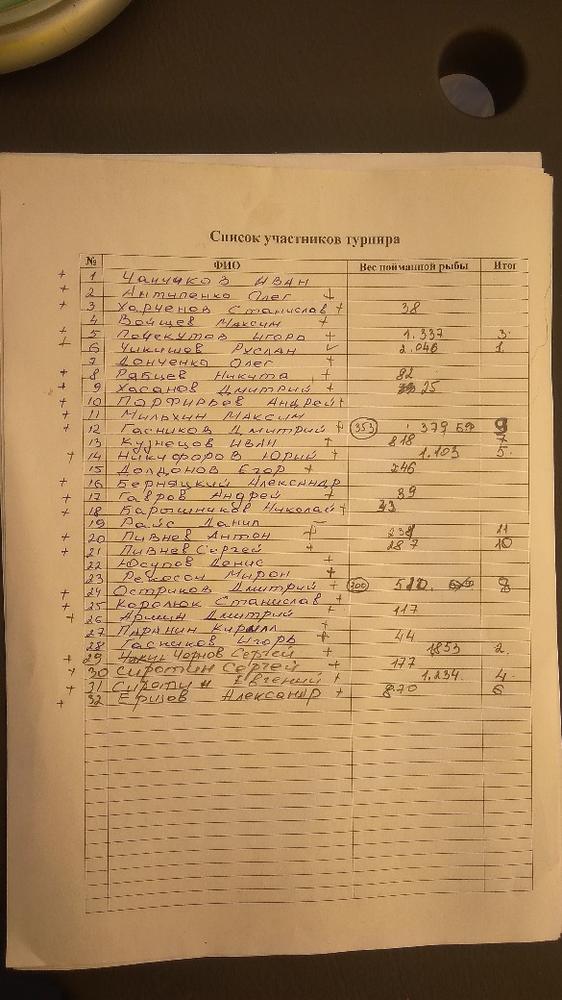 Список участников турнира
№ ФИО Вес пойманной рыбы Итог
+ 1 Чайчуков Иван
+ 2 Антипенко Олег +
+ 3 Харченов Станислав + 38
4 Войцев Максим +
+ 5 Почекутов Игорь + 1.337 3
+ 6 Чикишов Руслан ✓ 2.046 1
7 Донченко Олег +
+ 8 Рябцев Никита + 82
+ 9 Хасанов Дмитрий + 25
+ 10 Порфирьев Андрей +
+ 11 Мильхин Максим
+ 12 Гасников Дмитрий + 353 379 9
13 Кузнецов Иван + 818 7
+ 14 Никифоров Юрий + 1.103 5
15 Долдонов Егор + 246
+ 16 Берняцкий Александр
+ 17 Гавров Андрей + 89
+ 18 Барышников Николай + 43
19 Райс Данил –
+ 20 Пивнев Антон + 11
+ 21 Пивнев Сергей + 287 10
22 Юсупов Денис +
23 Мирон +
+ 24 Остриков Дмитрий + 200 8
+ 25 Королюк Станислав +
+ 26 Дмитрий + 117
27 Паранин Кирилл +
28 Гасников Игорь + 44
+ 29 Чернов Сергей + 1853 2.
+ 30 Сиротин Сергей + 177
+ 31 Сиротин Евгений + 1.234 4
+ 32 Александр + 870 6